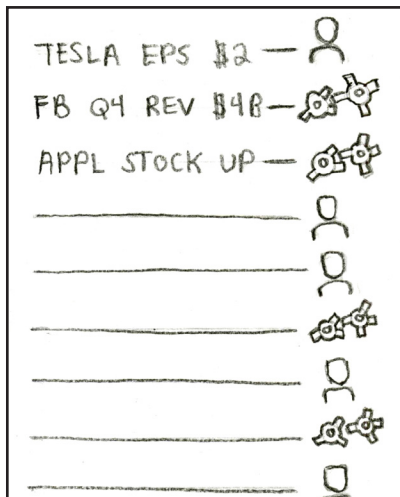 TESLA EPS $2 —
FB Q4 REV $4B —
APPL STOCK UP —